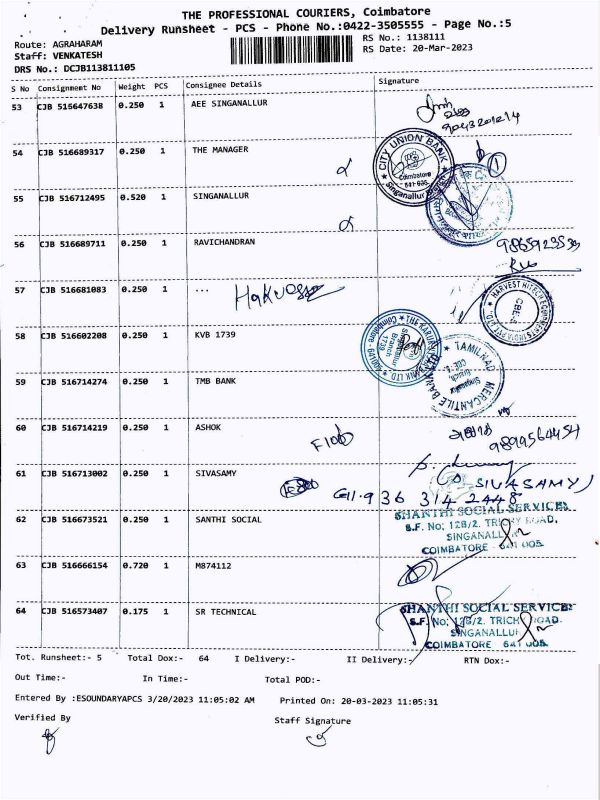 THE PROFESSIONAL COURIERS, Coimbatore
Delivery Runsheet - PCS - Phone No.:0422-3505555 - Page No.:5
Route: AGRAHARAM
RS No.: 1138111
Staff: VENKATESH
RS Date: 20-Mar-2023
DRS No.: DCJB113811105
S No Consignment No Weight PCS Consignee Details Signature
53 CJB 515647638 0.250 1 AEE SINGANALLUR
54 CJB 516689317 0.250 1 THE MANAGER
CITY UNION BANK
Coimbatore
641 005
Singanallur
55 CJB 516712495 0.520 1 SINGANALLUR
56 CJB 516689711 0.250 1 RAVICHANDRAN
57 CJB 516681083 0.250 1 ...
HARVEST HITECH
CBE
58 CJB 516602208 0.250 1 KVB 1739
Singanallur
Branch
1739
59 CJB 516714274 0.250 1 TMB BANK
TAMILNAD MERCANTILE BANK
60 CJB 516714219 0.250 1 ASHOK
9899564454
61 CJB 516713002 0.250 1 SIVASAMY
(SIVASAMY)
936 314 2448
62 CJB 516673521 0.250 1 SANTHI SOCIAL
SHANTHI SOCIAL SERVICES
S.F. No: 128/2. TRICHY ROAD,
SINGANALLUR
COIMBATORE - 641 005
63 CJB 516666154 0.720 1 M874112
64 CJB 516573407 0.175 1 SR TECHNICAL
SHANTHI SOCIAL SERVICES
S.F. No: 128/2. TRICHY ROAD.
SINGANALLUR
COIMBATORE 641 005
Tot. Runsheet:- 5 Total Dox:- 64 I Delivery:- II Delivery:- RTN Dox:-
Out Time:- In Time:- Total POD:-
Entered By :ESOUNDARYAPCS 3/20/2023 11:05:02 AM Printed On: 20-03-2023 11:05:31
Verified By Staff Signature